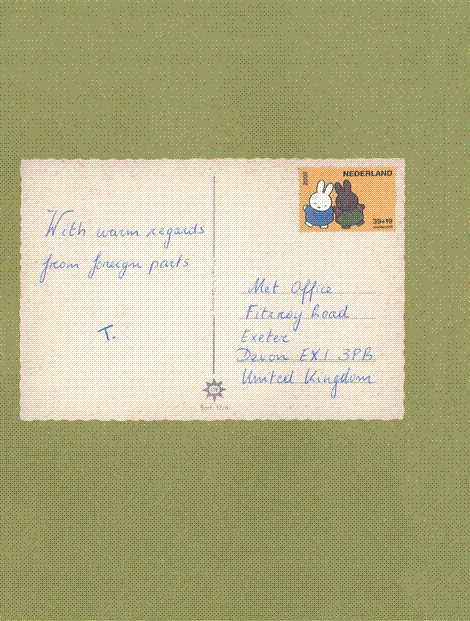 With warm regards
from foreign parts
T.
2005
NEDERLAND
39+19
Met Office
Fitzroy Road
Exeter
Devon EX1 3PB
United Kingdom